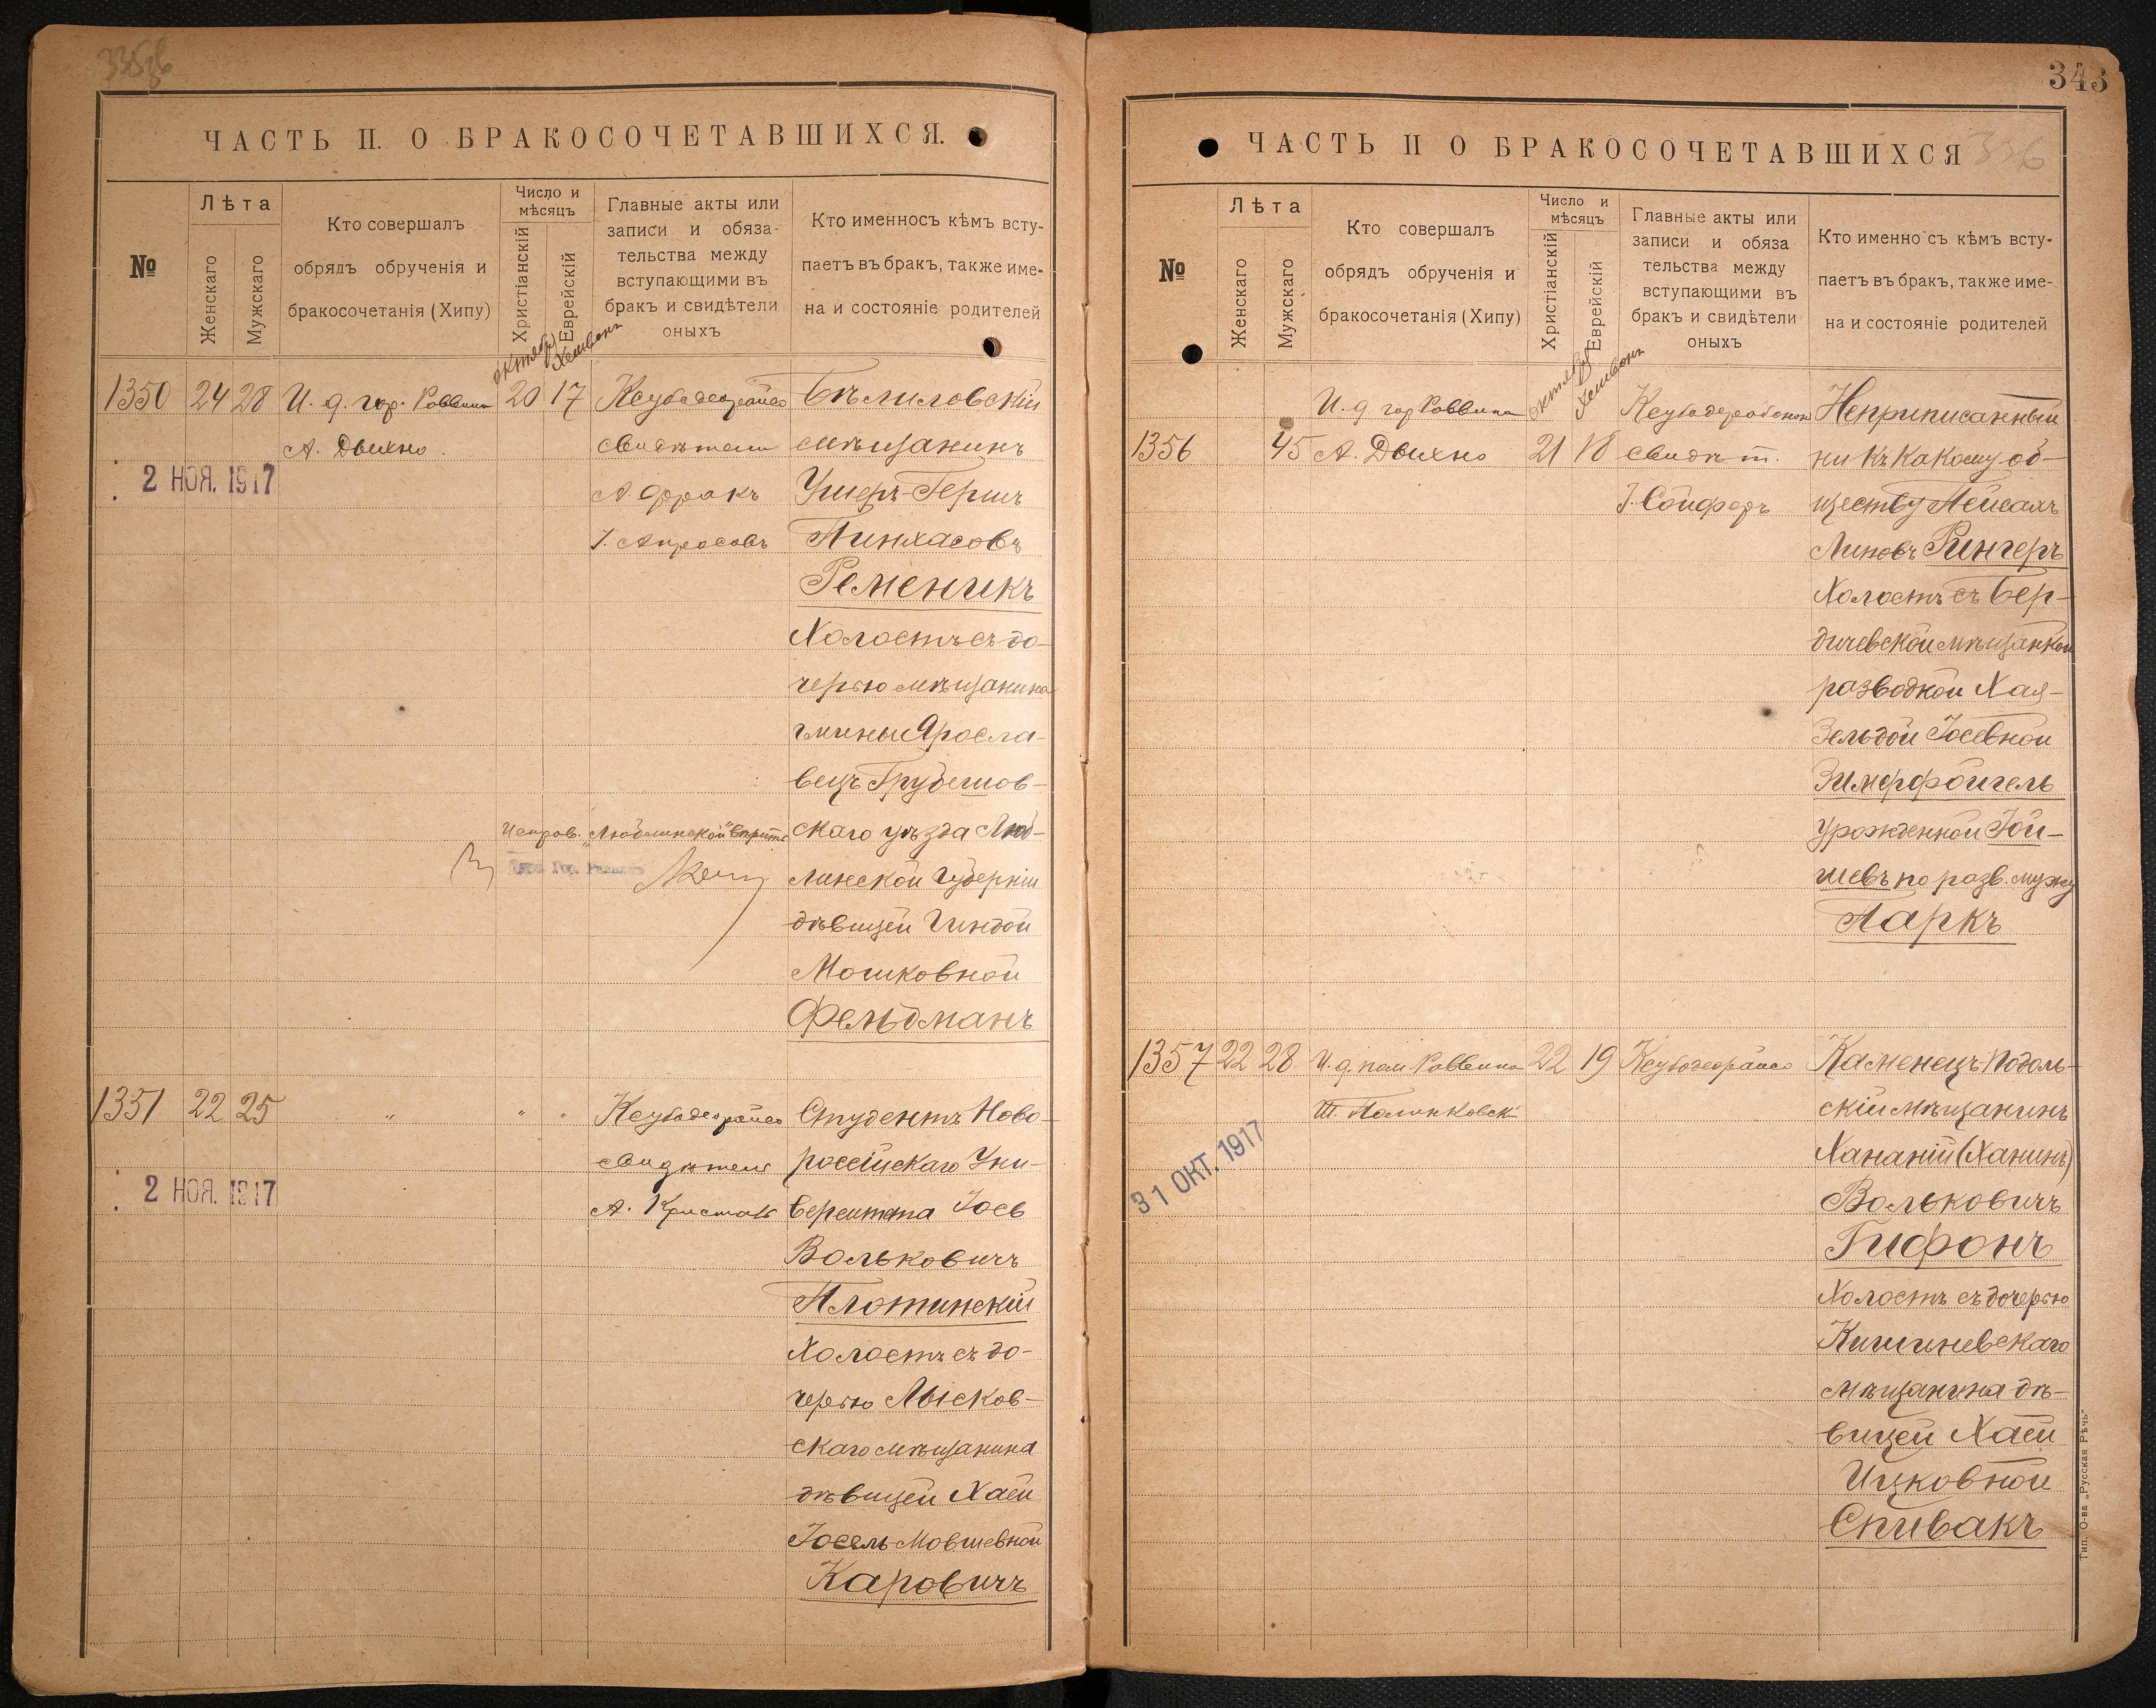 ЧАСТЬ П. О БРАКОСОЧЕТАВШИХСЯ.
№
Лѣта
Женскаго
Мужскаго
Кто совершалъ
обрядъ обрученія и
бракосочетанія (Хипу)
Число и
мѣсяцъ
Христіанскій
Еврейскій
Главные акты или
записи и обяза-
тельства между
вступающими въ
бракъ и свидѣтели
оныхъ
Кто именносъ кѣмъ всту-
паетъ въ бракъ, также име-
на и состояніе родителей
октября
Хешвонъ
1350 24 28 И. д. гор. Раввина 20 17
А. Дыхно
2 НОЯ. 1917
свидѣтели
мѣщанинъ
Ушеръ-Гершъ
Пинхасовъ
Ременикъ
Холостъ съ до-
черью мѣщанина
гмины Яросла-
вецъ Грубешов-
скаго уѣзда Люб-
линской губерніи
дѣвицей Гиндой
Мошковной
Фельдманъ
1351 22 25 " " "
2 НОЯ. 1917
Студентъ Ново-
россійскаго Уни-
верситета Іось
Вольковичъ
Плотинскій
Холостъ съ до-
черью Лысков-
скаго мѣщанина
дѣвицей Хаей
Іосель-Мовшевной
Каровичъ
343
ЧАСТЬ П О БРАКОСОЧЕТАВШИХСЯ
356
№
Лѣта
Женскаго
Мужскаго
Кто совершалъ
обрядъ обрученія и
бракосочетанія (Хипу)
Число и
мѣсяцъ
Христіанскій
Еврейскій
Главные акты или
записи и обяза
тельства между
вступающими въ
бракъ и свидѣтели
оныхъ
Кто именно съ кѣмъ всту-
паетъ въ бракъ, также име-
на и состояніе родителей
октября
Хешвонъ
И. д. гор Раввина
1356 45 А. Дыхно 21 18 свидѣт.
І. Сойферъ
Неприписанный
ни къ какому об-
ществу Пейсахъ
Липовъ Рингеръ
Холостъ съ Бер-
дичевской мѣщанкой
разводкой Хая-
Зельдой Іосевной
Зимерфойгель
урожденной Гой-
шевъ по разв. мужу
Паркъ
1357 22 28 И. д. пом Раввина 22 19
31 ОКТ. 1917
Каменецъ-Подоль-
скій мѣщанинъ
Хананій (Ханинъ)
Вольковичъ
Гифонъ
Холостъ съ дочерью
Кишиневскаго
мѣщанина дѣ-
вицей Хаей
Ицковной
Спивакъ
Тип. О-ва „Русская Рѣчь"